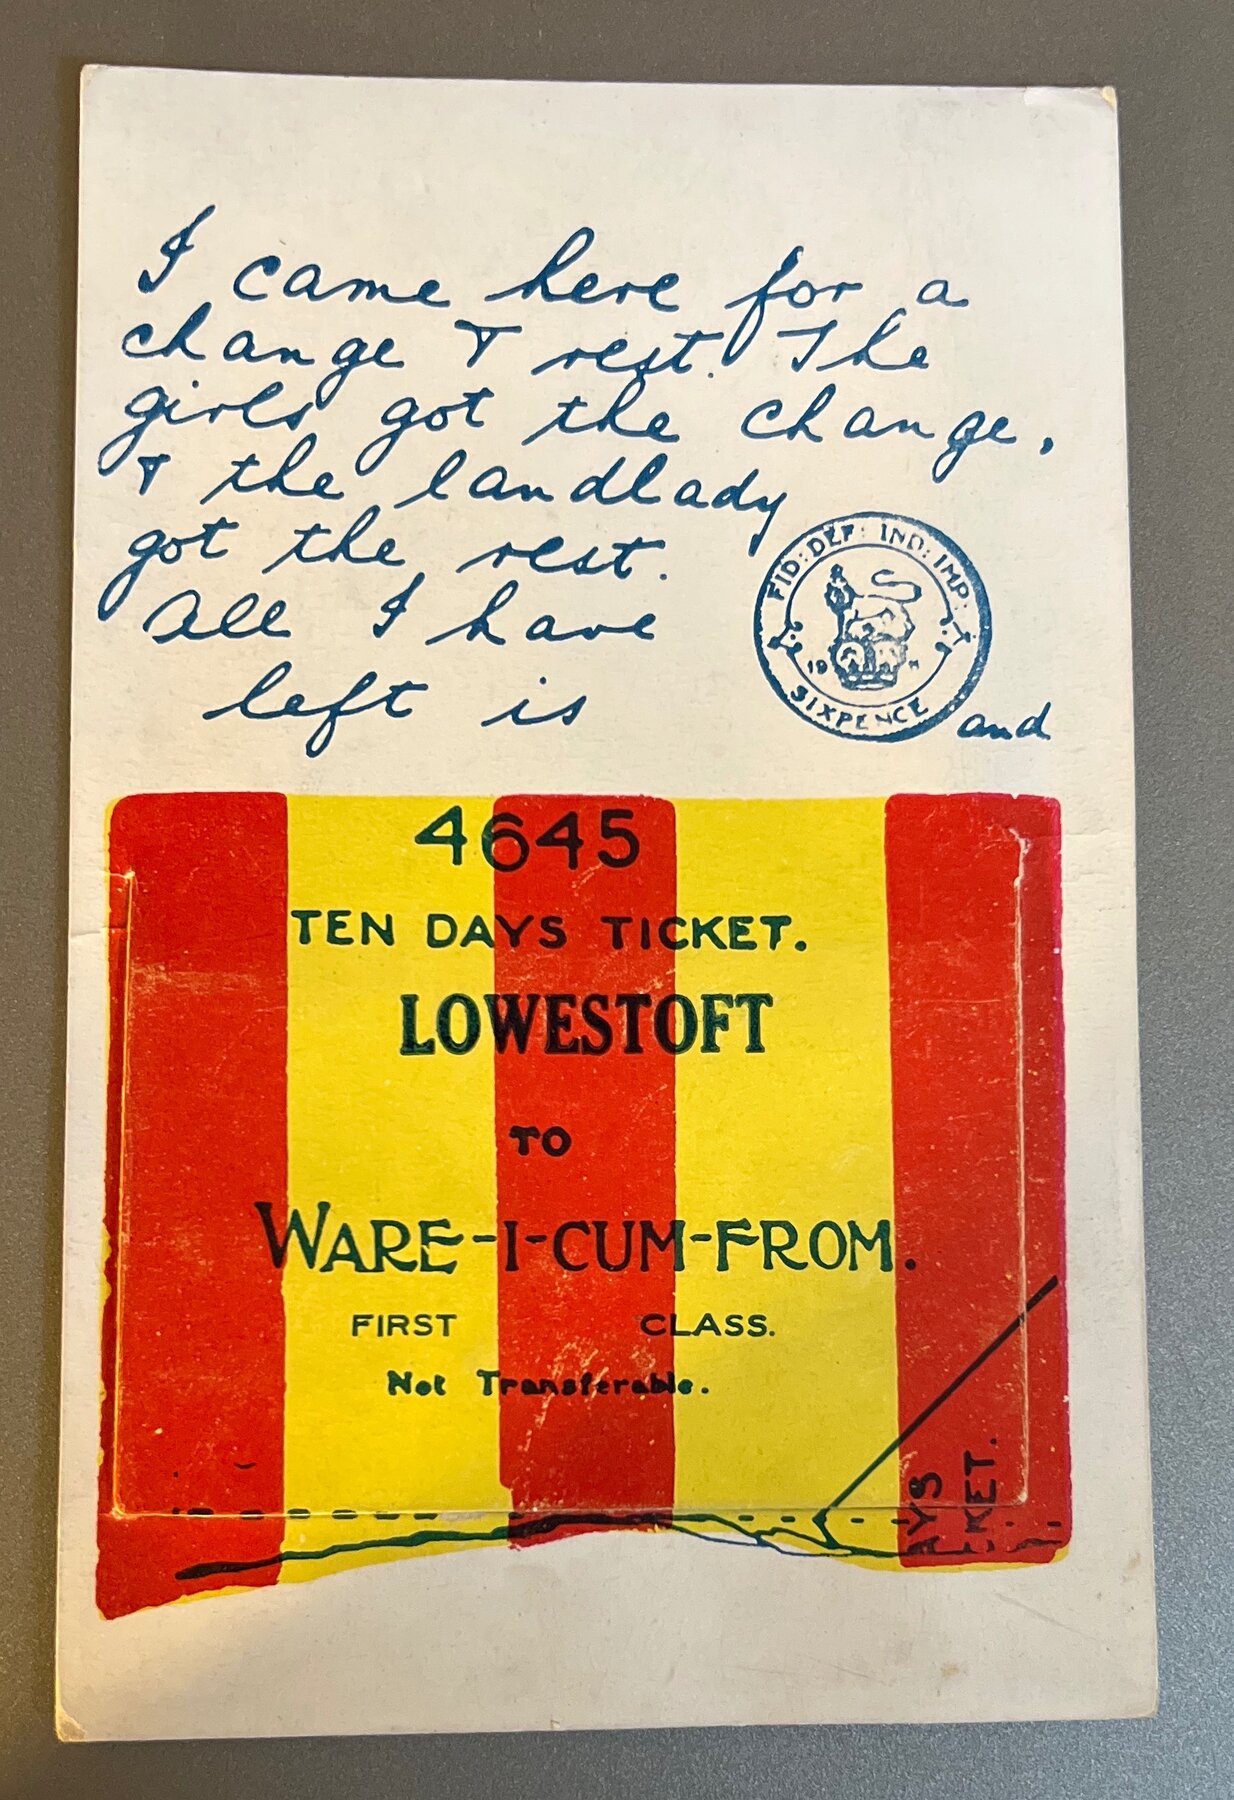 I came here for a
change & rest. The
girls got the change,
& the landlady
got the rest.
All I have
left is
FID: DEF: IND: IMP:
19
SIXPENCE
and
4645
TEN DAYS TICKET.
LOWESTOFT
TO
WARE-I-CUM-FROM.
FIRST CLASS.
Not Transferable.
AYS
KET.